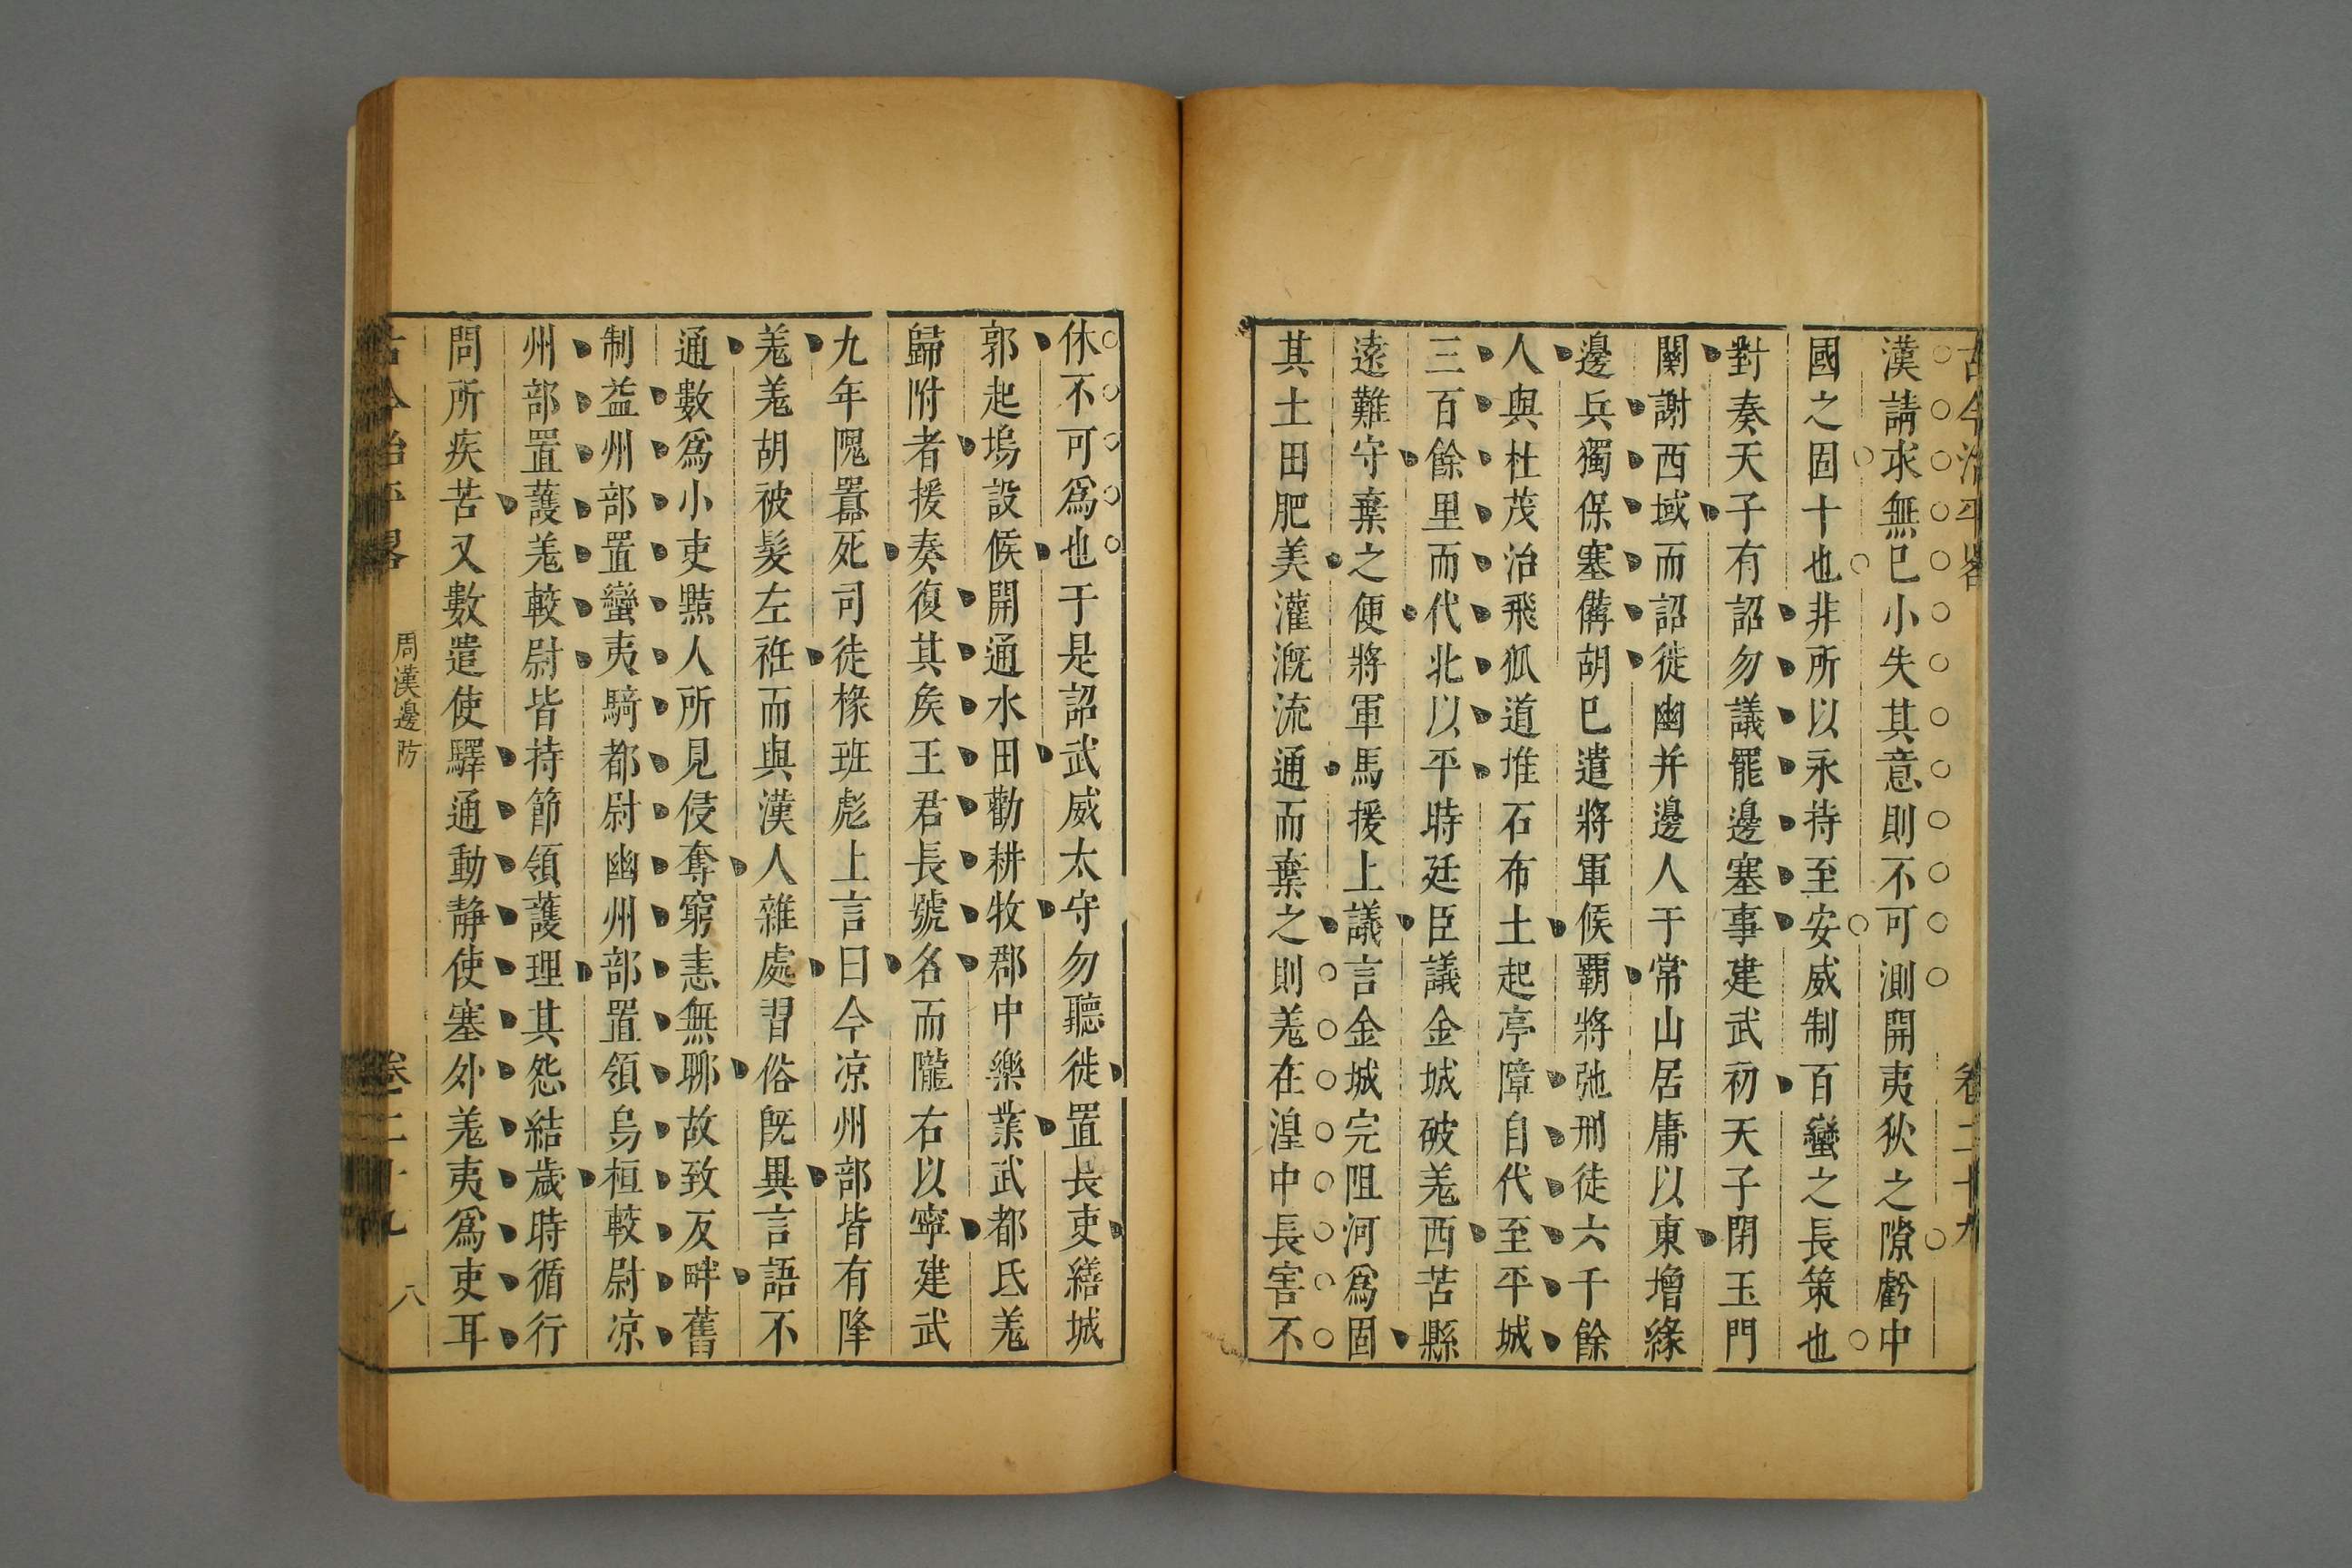 古今治平畧 卷二十九
漢請求無已小失其意則不可測開夷狄之隙虧中
國之固十也非所以永持至安威制百蠻之長策也
對奏天子有詔勿議罷邊塞事建武初天子閉玉門
關謝西域而詔徙幽并邊人于常山居庸以東增緣
邊兵獨保塞備胡巳遣將軍侯覇將弛刑徒六千餘
人與杜茂治飛狐道堆石布土起亭障自代至平城
三百餘里而代北以平時廷臣議金城破羌西苦縣
遠難守棄之便將軍馬援上議言金城完阻河爲固
其土田肥美灌溉流通而棄之則羌在湟中長害不
休不可爲也于是詔武威太守勿聽徙置長吏繕城
郭起塢設候開通水田勸耕牧郡中樂業武都氐羌
歸附者援奏復其矦王君長號名而隴右以寧建武
九年隗囂死司徒掾班彪上言曰今凉州部皆有降
羌羌胡被髮左衽而與漢人雜處習俗旣異言語不
通數爲小吏黠人所見侵奪窮恚無聊故致反畔舊
制益州部置蠻夷騎都尉幽州部置領烏桓較尉凉
州部置護羌較尉皆持節領護理其怨結歲時循行
問所疾苦又數遣使驛通動静使塞外羌夷爲吏耳
古今治平畧 周漢邊防 卷二十九 八